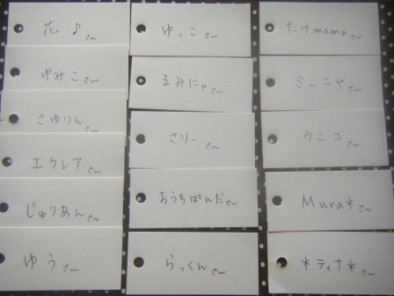 花♪さん
ゆみこさん
さゆりんさん
エクレアさん
じゅりあんさん
ゆうさん
ゆっこさん
まみにゃさん
さりーさん
おうちぱんださん
らっくんさん
たけmamaさん
ミーニャさん
ウニコさん
Mura*さん
*ティナ*さん